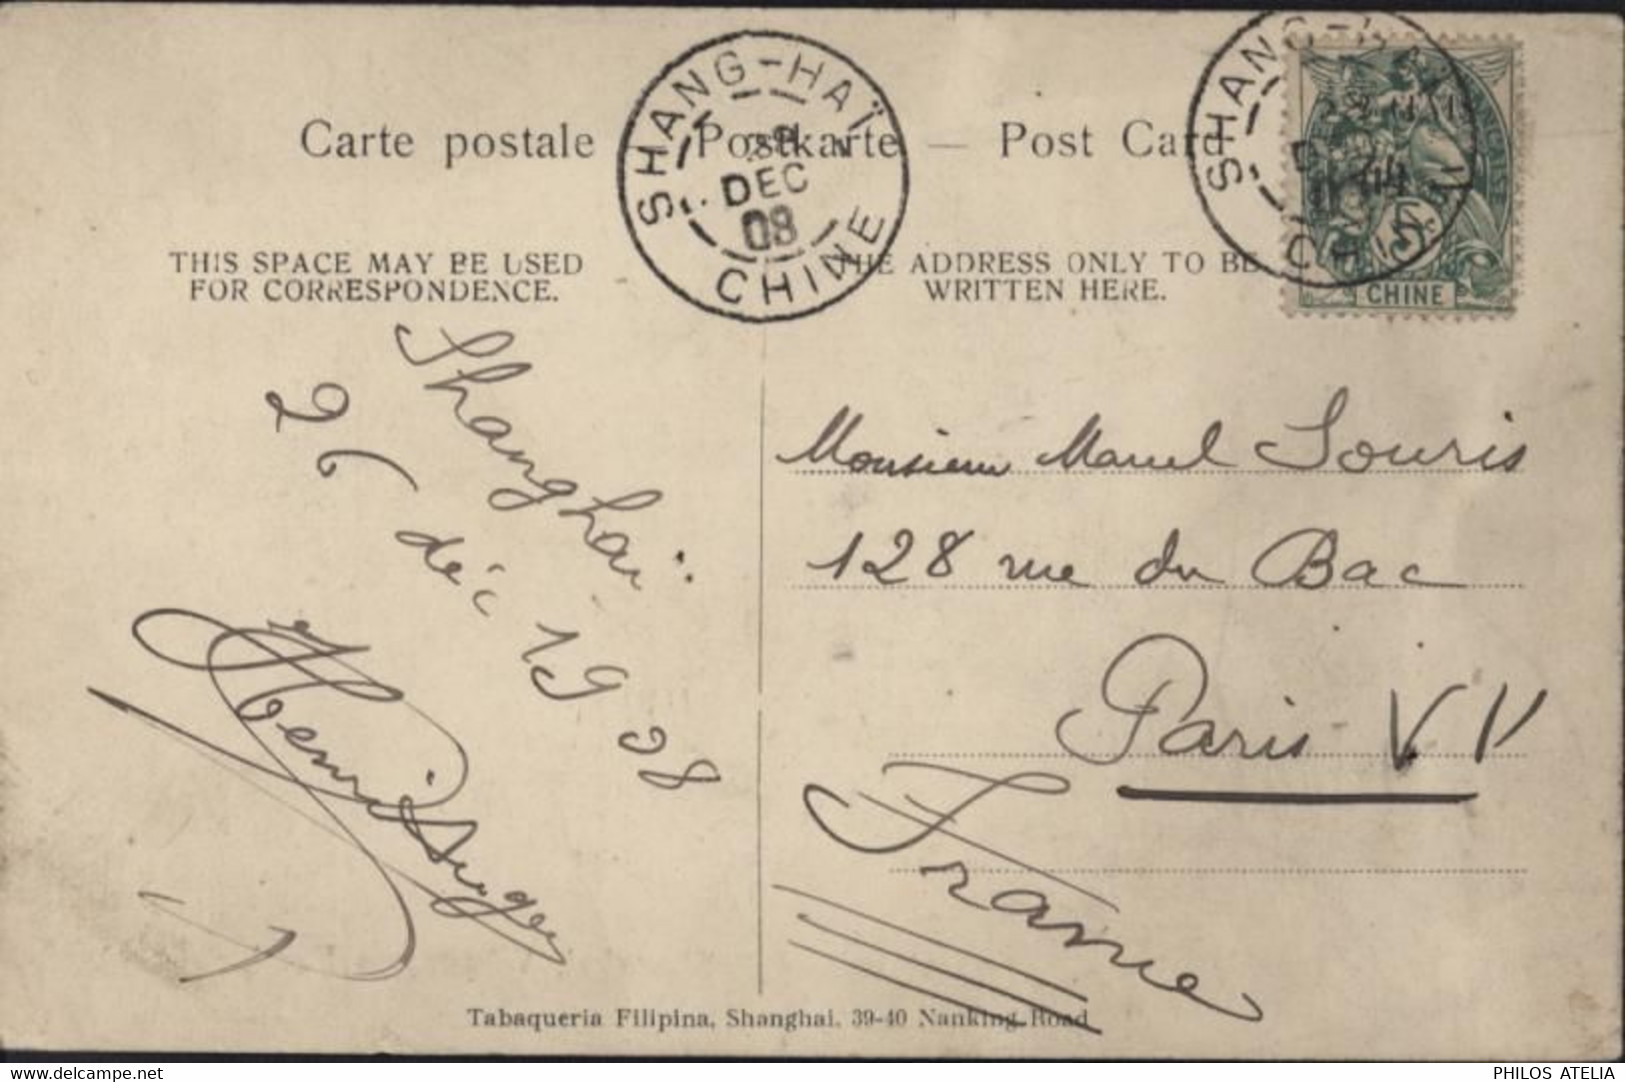 Carte postale — Postkarte — Post Card
SHANG-HAÏ
DEC
08
CHINE
SHANG-HAÏ
CHINE
5
CHINE
THIS SPACE MAY BE USED
FOR CORRESPONDENCE.
THE ADDRESS ONLY TO BE
WRITTEN HERE.
Shanghaï
26 déc 1908
Henri
Monsieur Marcel Souris
128 rue du Bac
Paris VII
France
Tabaqueria Filipina, Shanghai. 39-40 Nanking Road
www.delcampe.net
PHILOS ATELIA